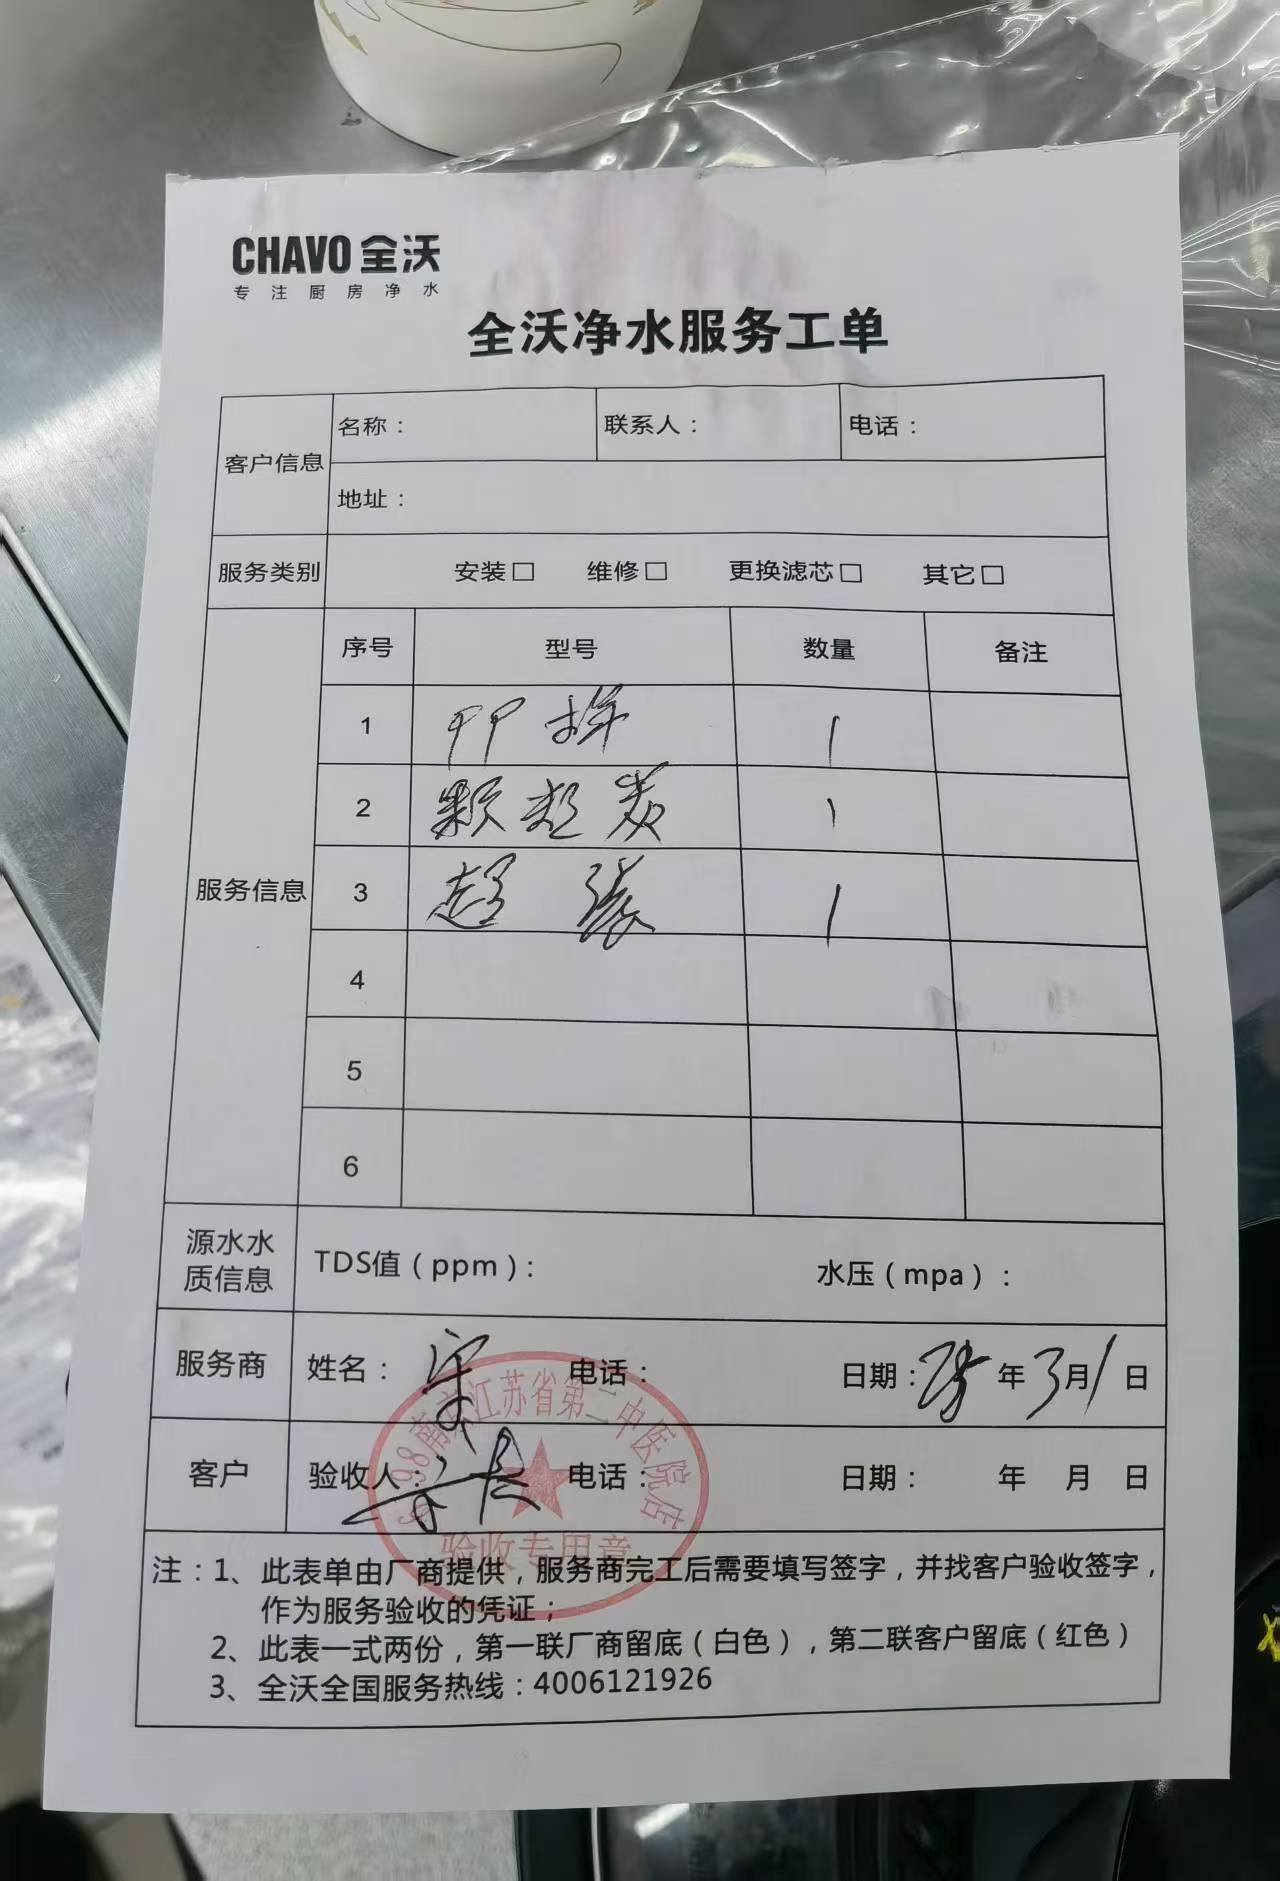 CHAVO 全沃
专注厨房净水
全沃净水服务工单
客户信息 名称： 联系人： 电话：
地址：
服务类别 安装□ 维修□ 更换滤芯□ 其它□
服务信息 序号 型号 数量 备注
1 PP棉 1
2 颗粒炭 1
3 超滤 1
4
5
6
源水水质信息 TDS值（ppm）： 水压（mpa）：
服务商 姓名：宋 电话： 日期：25年3月1日
客户 验收人： 电话： 日期： 年 月 日
南京江苏省第二中医院店
验收专用章
注：1、此表单由厂商提供，服务商完工后需要填写签字，并找客户验收签字，
作为服务验收的凭证；
2、此表一式两份，第一联厂商留底（白色），第二联客户留底（红色）
3、全沃全国服务热线：4006121926